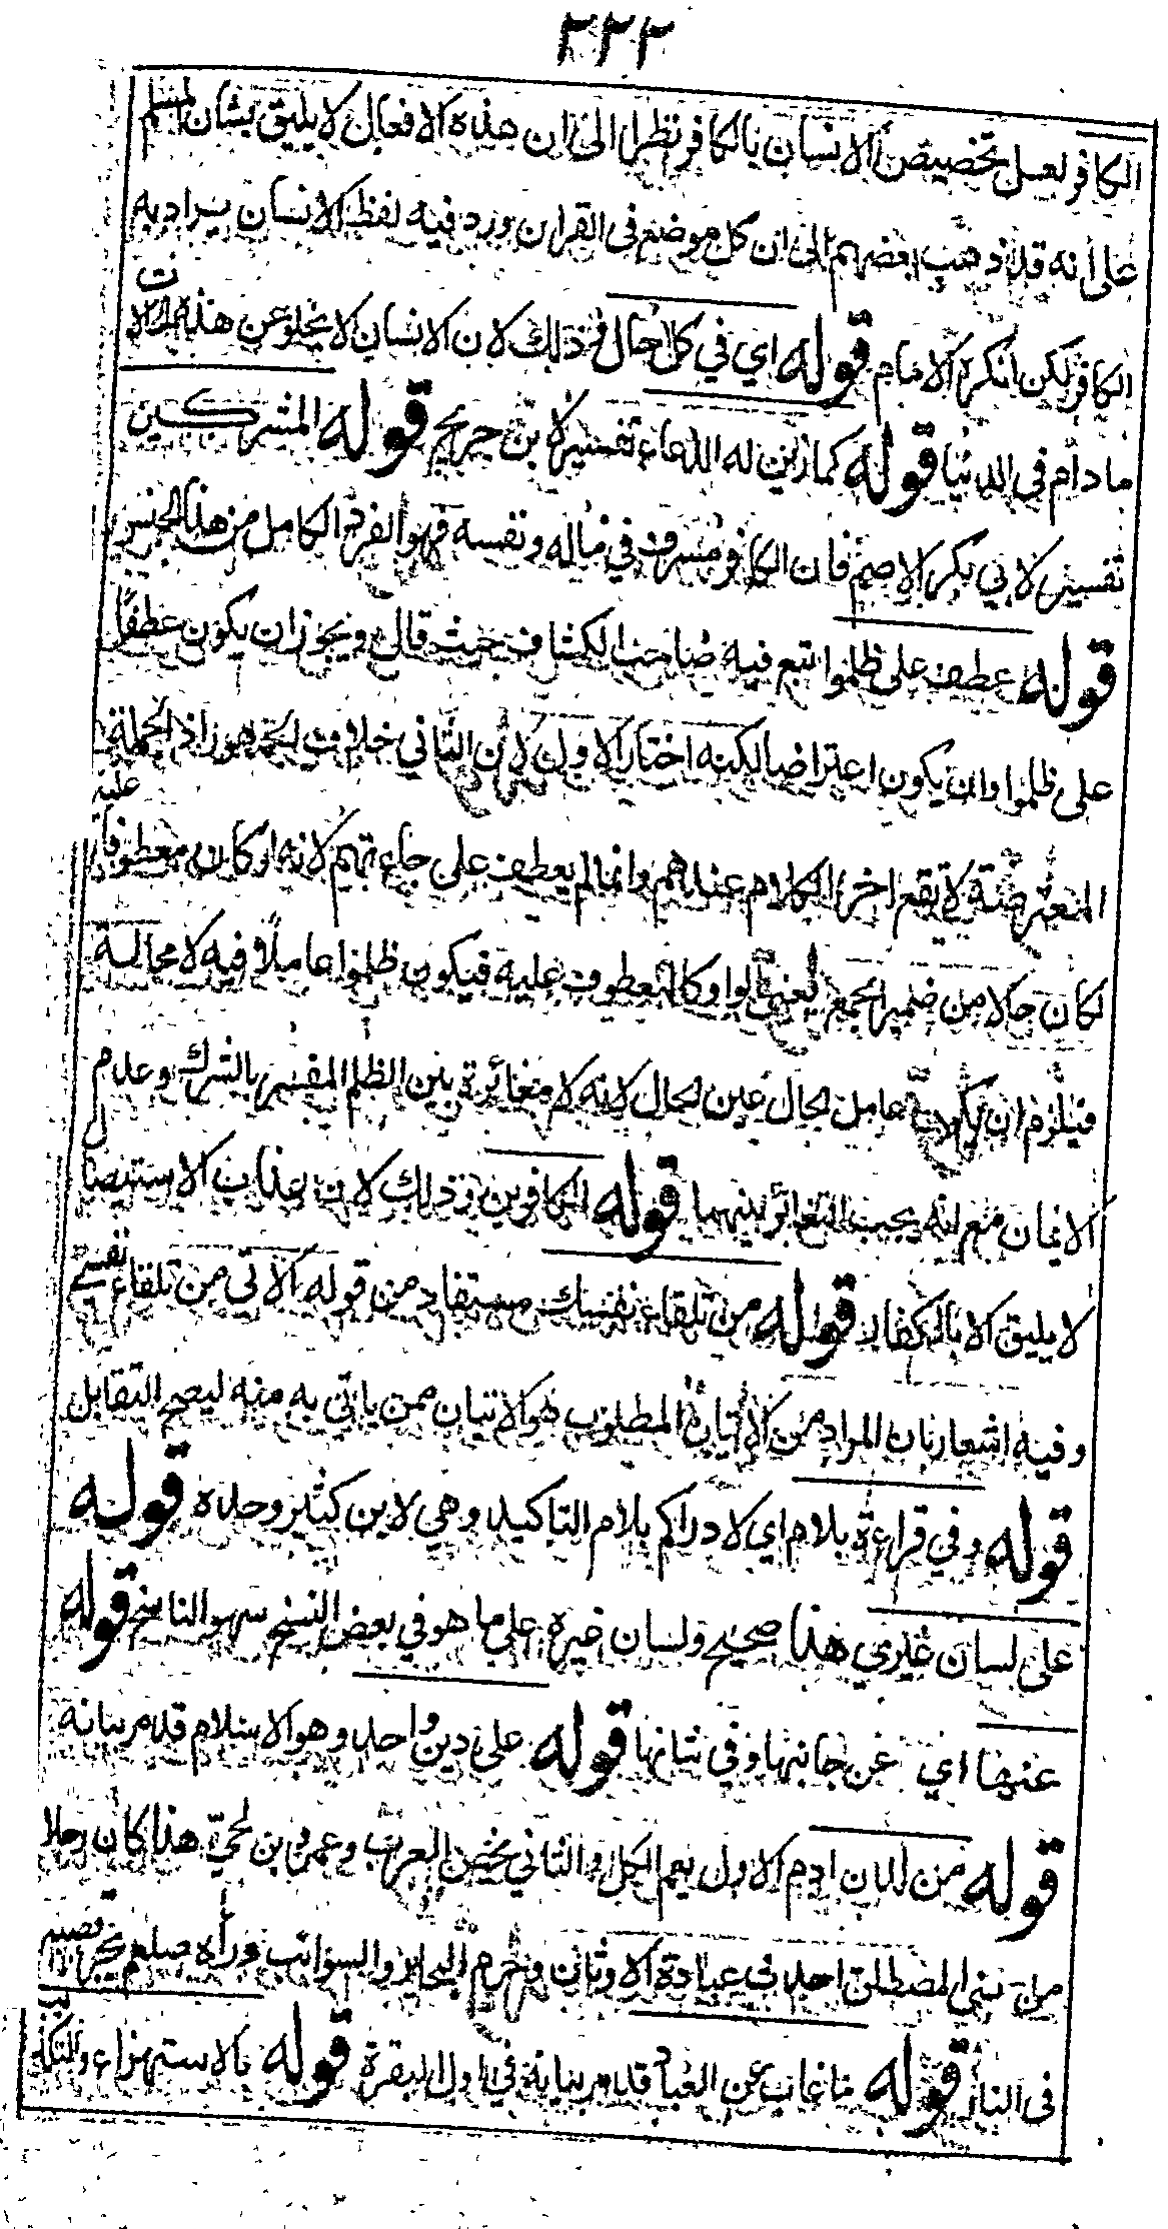 ٣٣٢
الكافر لعل تخصيص الانسان بالكافر نظرا الى ان هذه الافعال لا يليق بشان المسلم
على انه قد ذهب بعضهم الى ان كل موضع في القران ورد فيه لفظ الانسان يراد به
الكافر لكن انكره الامام قوله اي في كل حال وذلك لان الانسان لا يخلو عن هذه الحالات
ما دام في الدنيا قوله كما زين له الدعاء تفسير لابن جريج قوله المشركين
تفسير لابي بكر الاصم فان الكافر مسرف في ماله ونفسه فهو الفرد الكامل من هذا الجنس
قوله عطف على ظلموا اتبع فيه صاحب الكشاف حيث قال ويجوز ان يكون عطفا
على ظلموا وان يكون اعتراضا لكنه اختار الاول لان الثاني خلاف الجمهور اذ الجملة
المعترضة لا يقع اخر الكلام عندهم وانما لم يعطف على جاءتهم لانه لو كان معطوفا عليه
لكان حالا من ضمير الجمع في قالوا وكالمعطوف عليه فيكون ظلموا عاملا فيه لا محالة
فيلزم ان يكون عامل الحال عين الحال لانه لا مغائرة بين الظلم المفسر بالشرك وعدم
الايمان مع انه يجب التغائر بينهما قوله الكافرين وذلك لان عذاب الاستيصال
لا يليق الا بالكفار قوله من تلقاء نفسك مستفاد من قوله الاتي من تلقاء نفسي
وفيه اشعار بان المراد من الاتيان المطلوب هو الاتيان ممن ياتى به منه ليصح التقابل
قوله وفي قراءة بلام اي لادراكم بلام التاكيد وهي لابن كثير وحده قوله
على لسان غيري هذا صحيح ولسان خيره على ما هو في بعض النسخ سهو الناسخ قوله
عنها اي عن جانبها وفي شانها قوله على دين واحد وهو الاسلام قد مر بيانه
قوله من لدن ادم الاول يعم الكل والثاني يختص العرب وعمرو بن لحي هذا كان رجلا
من بني المصطلق احدث عبادة الاوثان وحرم البحائر والسوائب وراه صلعم يجر قصبه
في النار قوله ما غاب عن العباد قد مر بيانه في اول البقرة قوله بالاستهزاء والتكذيب